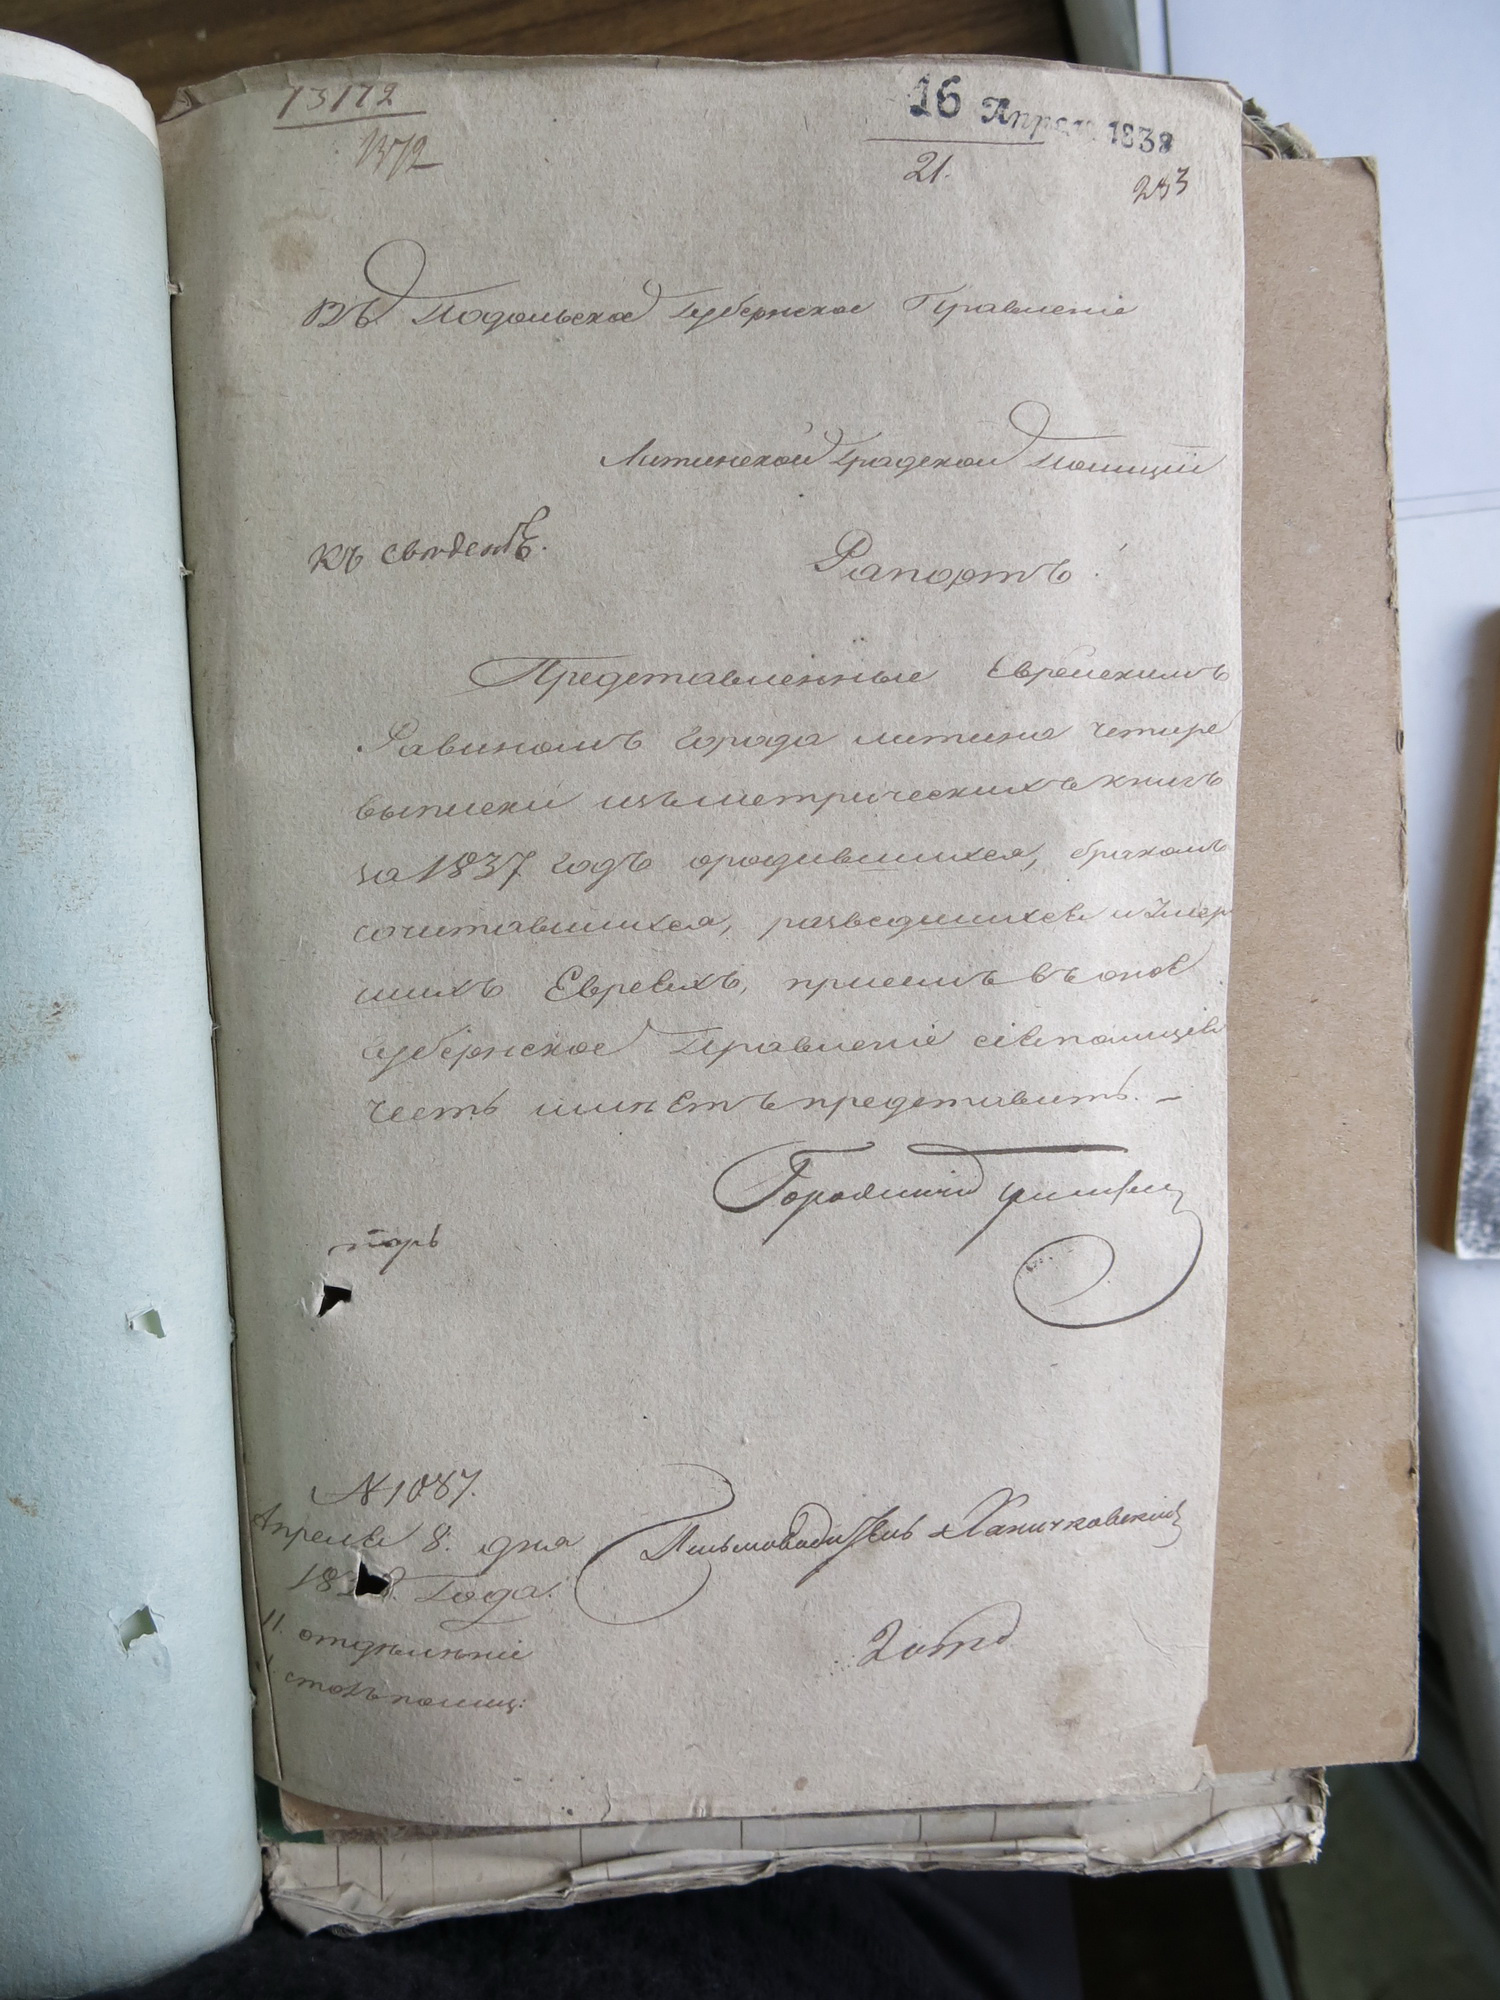 73172
1372
16 Апреля 1838
21.
233
Въ Подольское Губернское Правленіе
Литинской Градской Полиціи
Къ сведенію.
Рапортъ.
Представленные Еврейскимъ
Равиномъ города литина четире
выписки изъ метрическихъ книгъ
за 1837 годъ ородившихся, бракомъ
сочитавшихся, разведшихся и Умер
шихъ Евреяхъ, приемъ въ оное
Губернское Правленіе сія полиція
честь имеетъ представить. —
Городничій
№ 1087.
Апреля 8. дня
1838. Года.
Письмоводитель
11. отделеніе
столъ полиц: